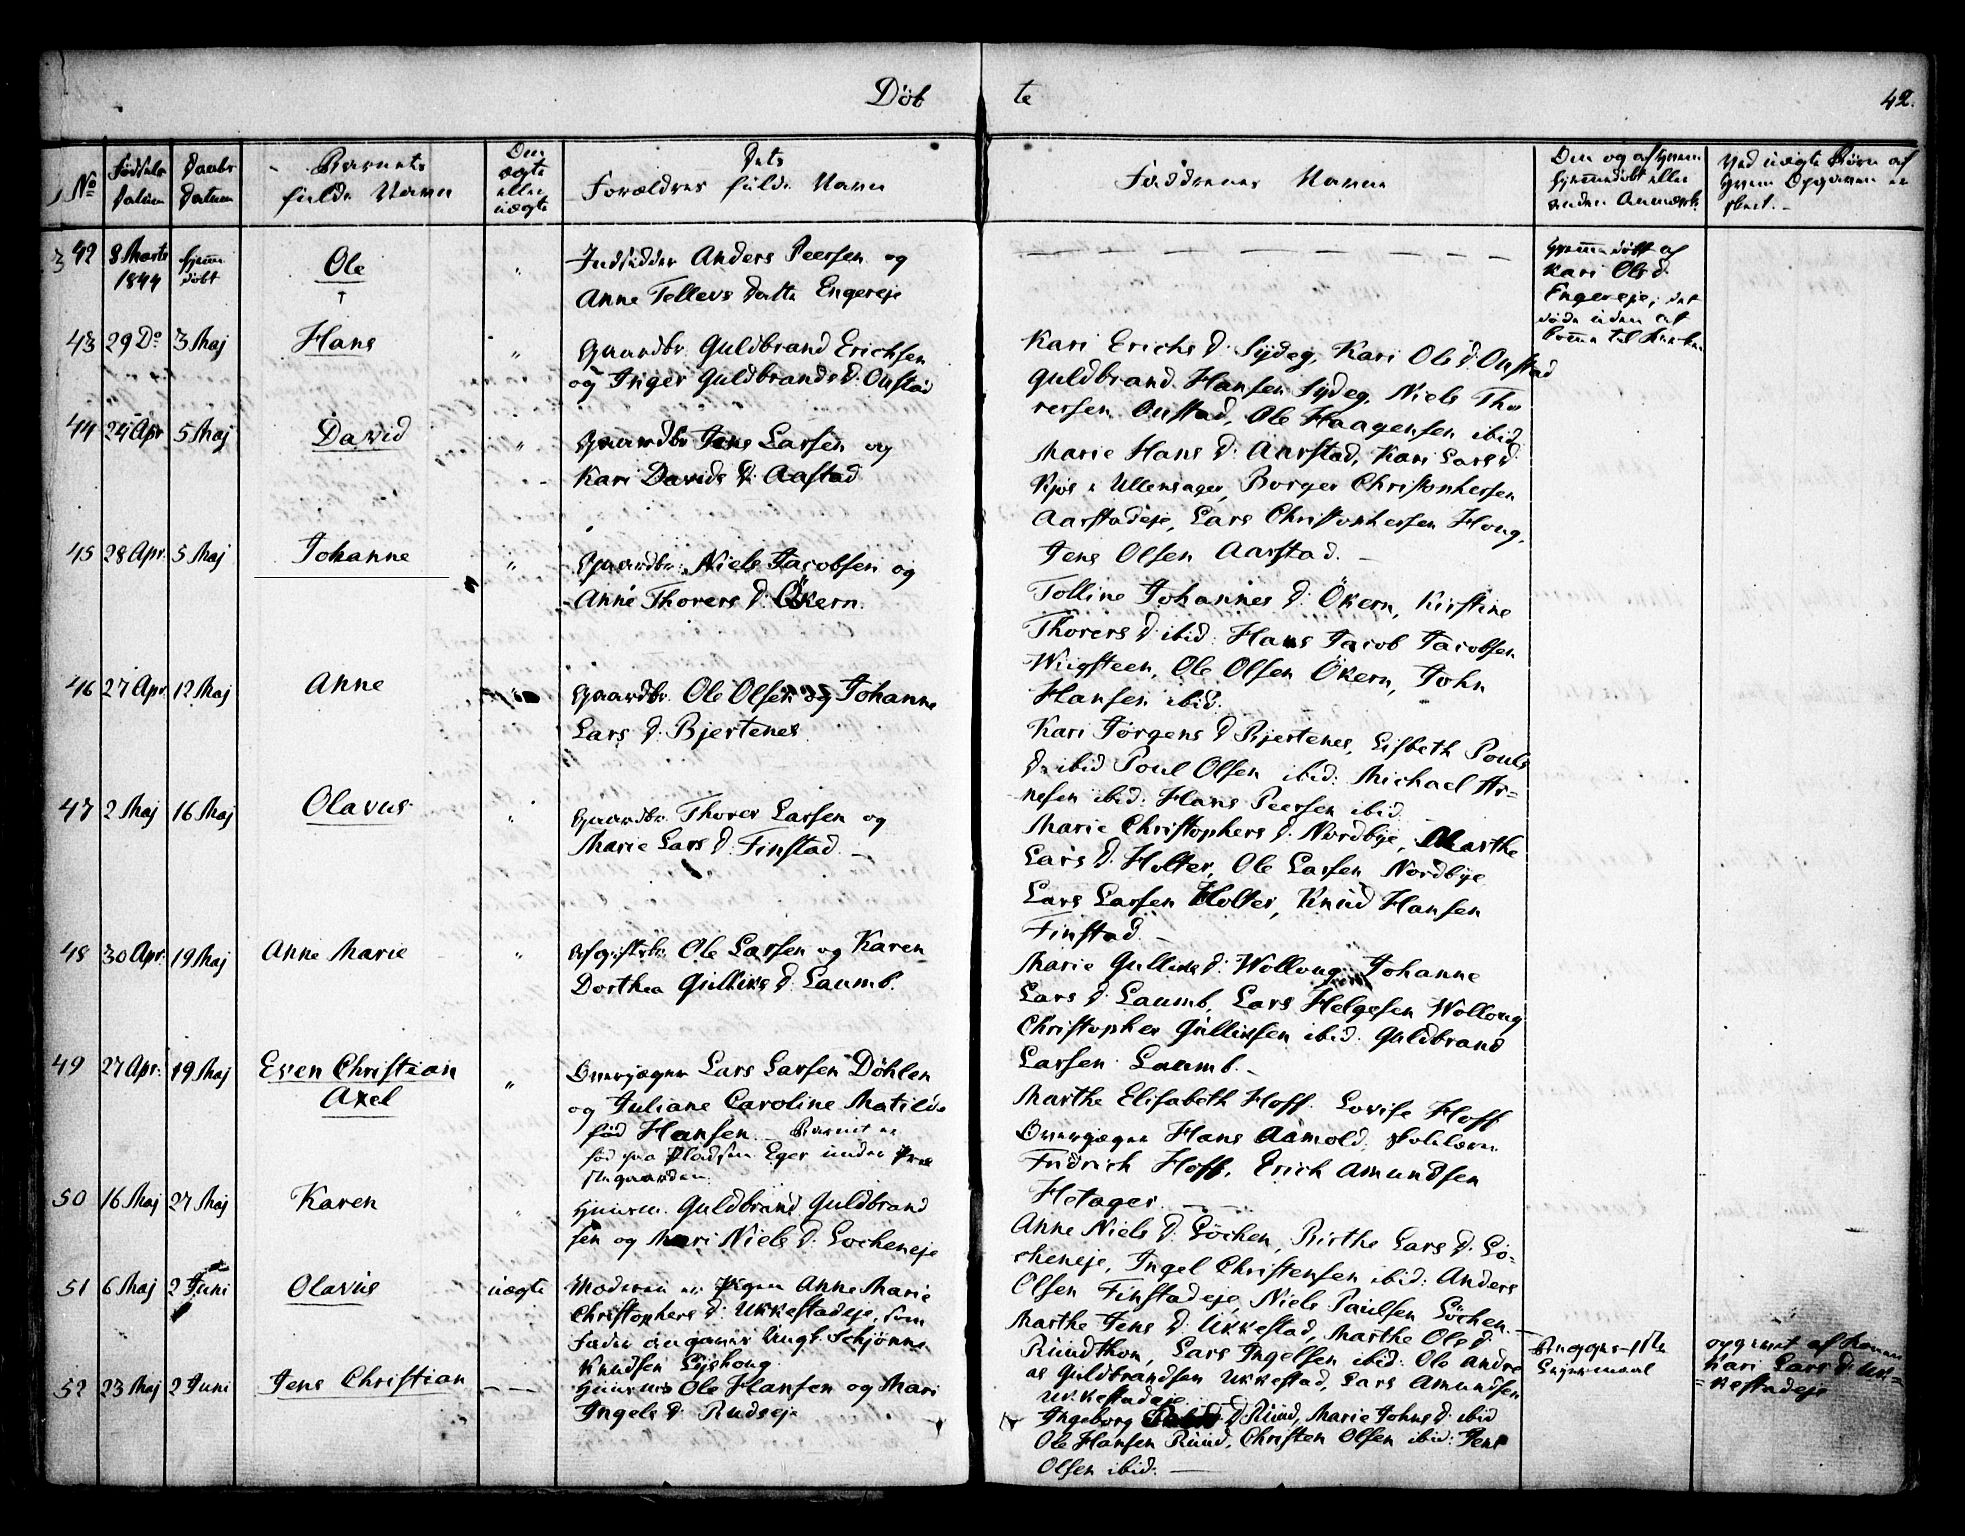 Døb te 42.
No
Fødsels Datum
Daabs Datum
Barnets fulde Navn
Om ægte eller uægte
Dets Forældres fulde Navn
Faddrenes Navne
42 8 Marts 1844 hjemmedøbt Ole † "
Anders Peersen og
Anne Tellevs Datter Engereje
Kari Ols D.
Engereje, det
døde uden at
komme til Kirken
43 29 Do 3 Maj Hans "
Gaardbr. Guldbrand Erichsen
og Inger Guldbrands D: Onstad
Kari Erichs D: Sydeg, Kari Ols D: Onstad
Guldbrand Hansen Sydeg, Niels Tho
resen Onstad, Ole Haagensen ibid
44 24 Apr 5 Maj David "
Gaardbr Jens Larsen og
Kari Davids D: Aastad
Marie Hans D: Aarstad, Kari Lars D:
Kjos i Ullensager, Borger Christophersen
Aarstadeje, Lars Christophersen Houg,
Jens Olsen Aarstad. —
45 28 Apr. 5 Maj Johanne "
Gaardbr. Niels Jacobsen og
Anne Thorers D: Økern.
Tolline Johannes D: Økern, Kirstine
Thorers D: ibid: Hans Jacob Jacobsen
Wiigsteen, Ole Olsen Økern, John
Hansen ibid:
46 27 Apr. 12 Maj Anne
Gaardbr. Ole Olsen og Johanne
Lars D: Bjertenes
Kari Jørgens D Bjertenes, Lisbeth Pouls
D: ibid Poul Olsen ibid: Michael Ar=
nesen ibid: Hans Peersen ibid.
47 2 Maj 16 Maj Olavus "
Gaardbr. Thorer Larsen og
Marie Lars D: Finstad —
Marie Christophers D: Nordbye, Marthe
Lars D: Holter, Ole Larsen Nordbye
Lars Larsen Holter, Knud Hansen
Finstad —
48 30 Apr. 19 Maj Anne Marie "
Ole Larsen og Karen
Dorthea Gulliks D: Laumb.
Marie Gulliks D: Wolloug Johanne
Lars D: Laumb, Lars Helgesen Wolloug
Christopher Gulliksen ibid: Guldbrand
Larsen Laumb. —
49 27 Apr. 19 Maj Even Christian
Axel "
Overjæger Lars Larsen Döhlen
og Juliane Caroline Matilde
fød Hansen. Barnet er
fød paa Pladsen Eger under Præ
stegaarden.
Marthe Elisabeth Hoff. Lovise Hoff
Overjæger Hans Aamold, Skolelærer
Fredrich Hoff, Erich Amundsen
Hetager.
50 16 Maj 27 Maj Karen "
Guldbrand Guldbrand
sen og Mari Niels D: Locheneje
Anne Niels D: Löchen, Birthe Lars D: Lö=
cheneje, Ingel Christensen ibid: Anders
Olsen Finstadeje, Niels Paulsen Löchen. —
51 6 Maj 2 Juni Olavus uægte
Moderen er Pigen Anne Marie
Christophers D: Ukkestadeje, som
Fader angives Ungk. Schjønne
Knudsen
Marthe Jens D: Ukkestad, Marthe Ols D:
Lars Ingelsen ibid: Ole Andre
as Guldbrandsen Ukkestad, Lars Amundsen
Ukkestadeje
Begges 1ste
Lejermaal
opgivet af Konen
Kari Lars D: Uk=
=kestadeje
52 23 Maj 2 Juni Jens Christian — —
Ole Hansen og Mari
Ingels D: Rudseje
Ingeborg D: Ruud, Marie Johns D: ibid
Ole Hansen Ruud, Christen Olsen ibid: Jens
Olsen ibid: —